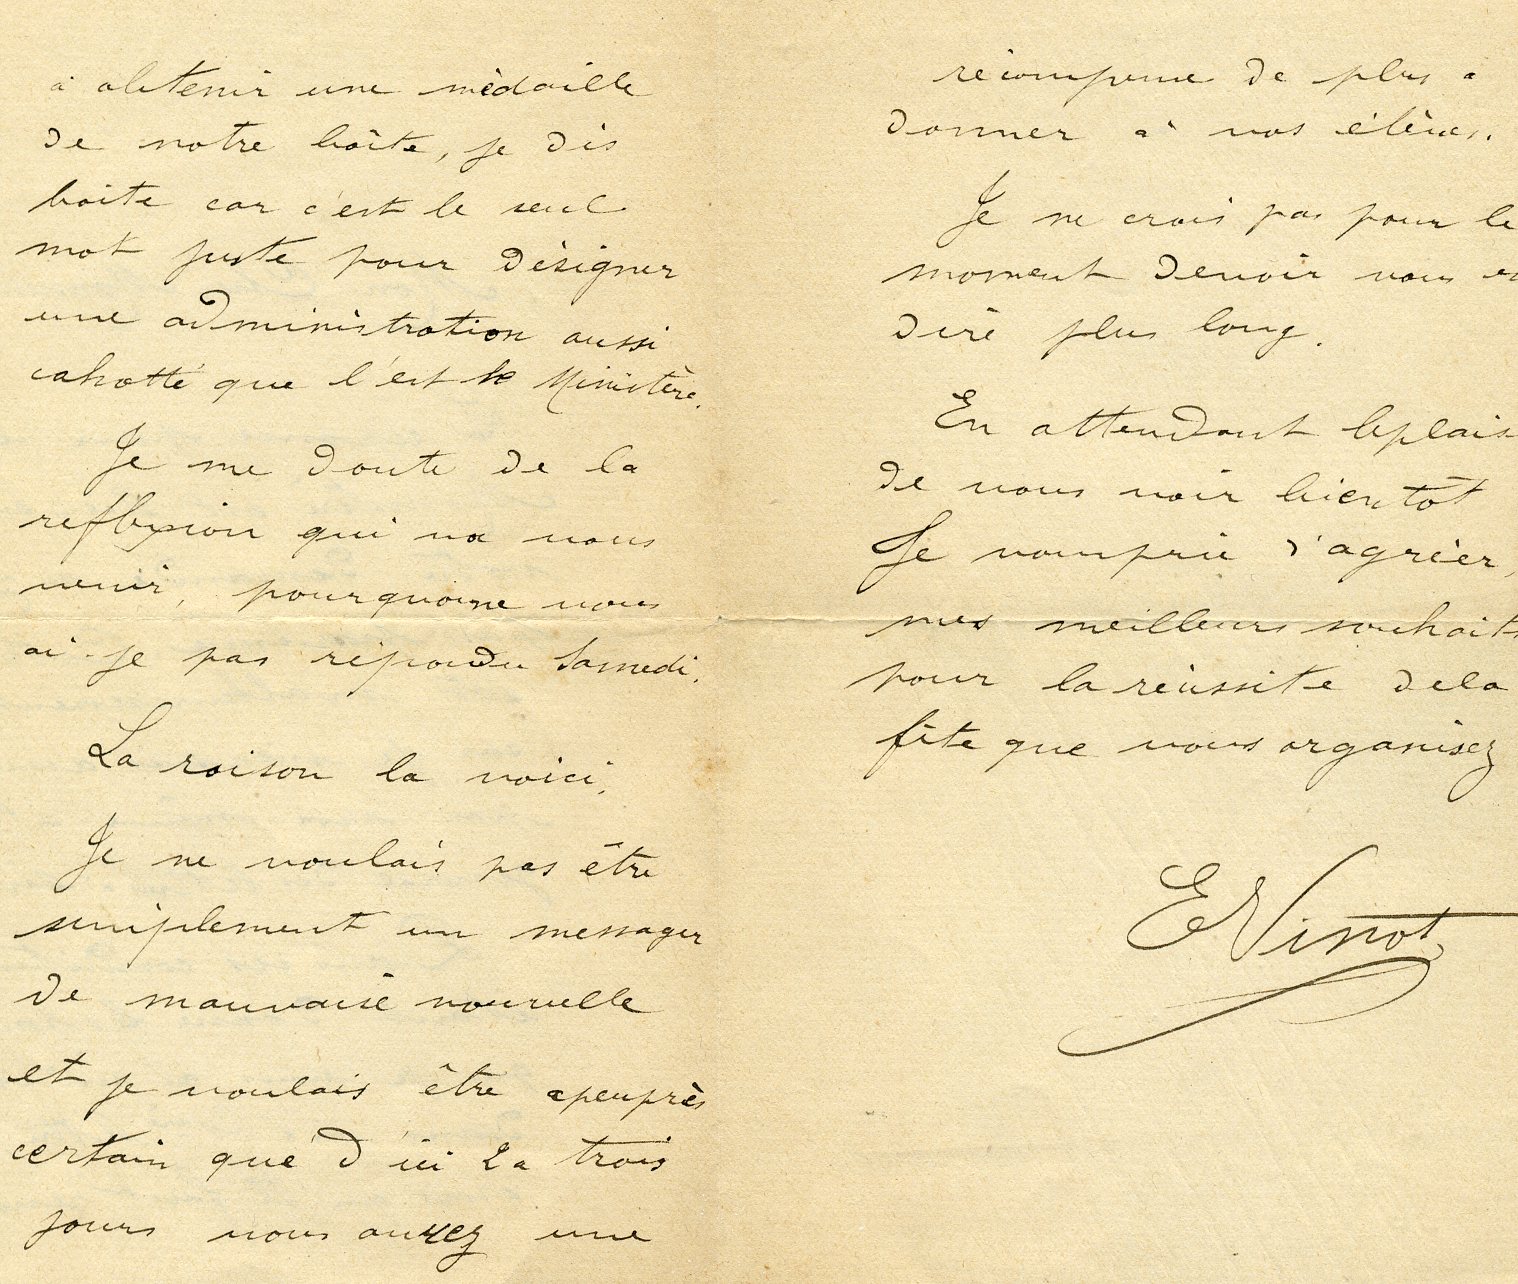 à obtenir une médaille
de notre boîte, je dis
boite car c'est le seul
mot juste pour désigner
une administration aussi
cahotté que l'est le Ministère.
Je me doute de la
reflexion qui va vous
venir, pourquoi ne vous
ai-je pas répondu Samedi.
La raison la voici.
Je ne voulais pas être
simplement un messager
de mauvaise nouvelle
et je voulais être apeuprès
certain que d'ici 2 a trois
jours vous aurez une
récompense de plus a
donner à vos élèves.
Je ne crois pas pour le
moment devoir vous en
dire plus long.
En attendant le plais
de vous voir bientôt
Je vous prie d'agréer,
mes meilleurs souhaits
pour la réussite de la
fête que vous organisez
E Vinot